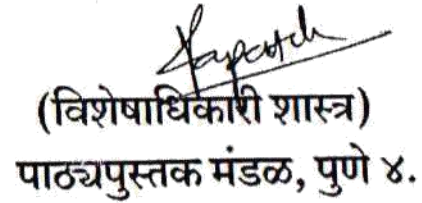 (विशेषाधिकारी शास्त्र)
पाठ्यपुस्तक मंडळ, पुणे ४.